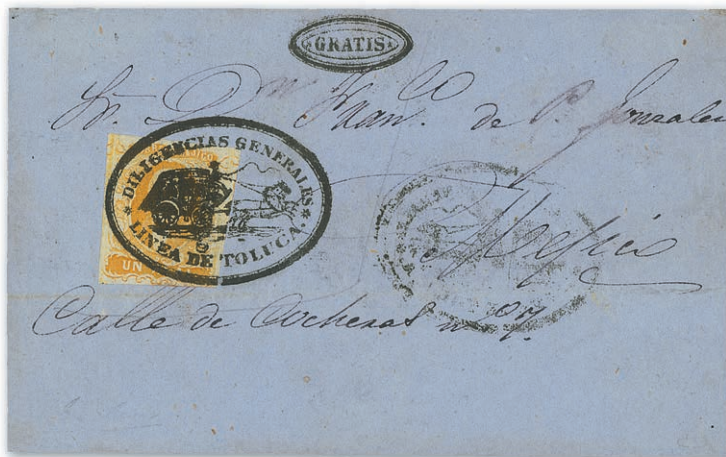 GRATIS
Sr. Dn Fran.co de P. Gonzalez
MEXICO
DILIGENCIAS GENERALES
LINEA DE TOLUCA.
UN
Mexico
Calle de Cocheras n. 27.